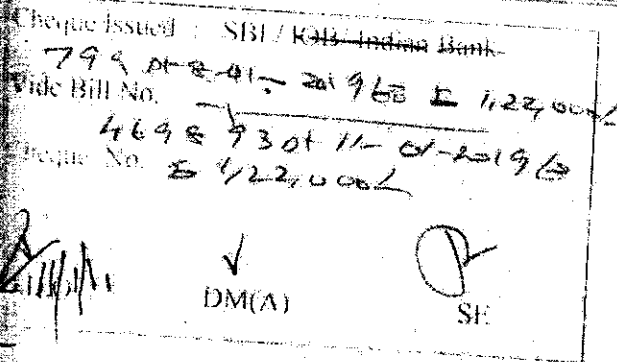 Cheque Issued : SBI / IOB / Indian Bank
799 dt 8-01-2019 1,22,000/-
Vide Bill No.
469893 dt 11-01-2019
Cheque No. 1,22,000/-
DM(A) SE